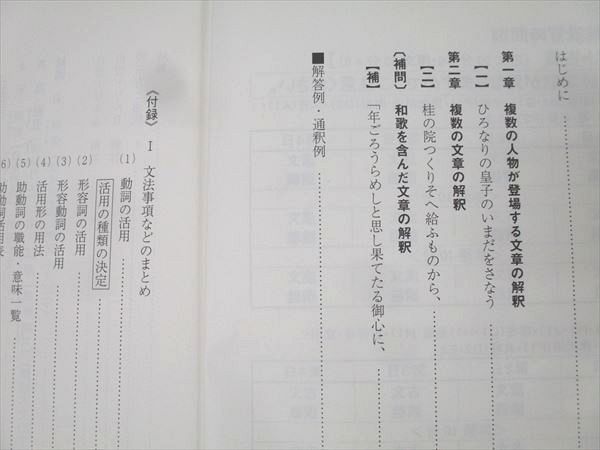 はじめに
第一章 複数の人物が登場する文章の解釈
【一】 ひろなりの皇子のいまだをさなう
第二章 複数の文章の解釈
【二】 桂の院つくりそへ給ふものから、
〔補問〕 和歌を含んだ文章の解釈
【補】 「年ごろうらめしと思し果てたる御心に、
■解答例・通釈例
《付録》 Ⅰ 文法事項などのまとめ
(1) 動詞の活用
活用の種類の決定
(2) 形容詞の活用
(3) 形容動詞の活用
(4) 活用形の用法
(5) 助動詞の職能・意味一覧
(6) 助動詞活用表